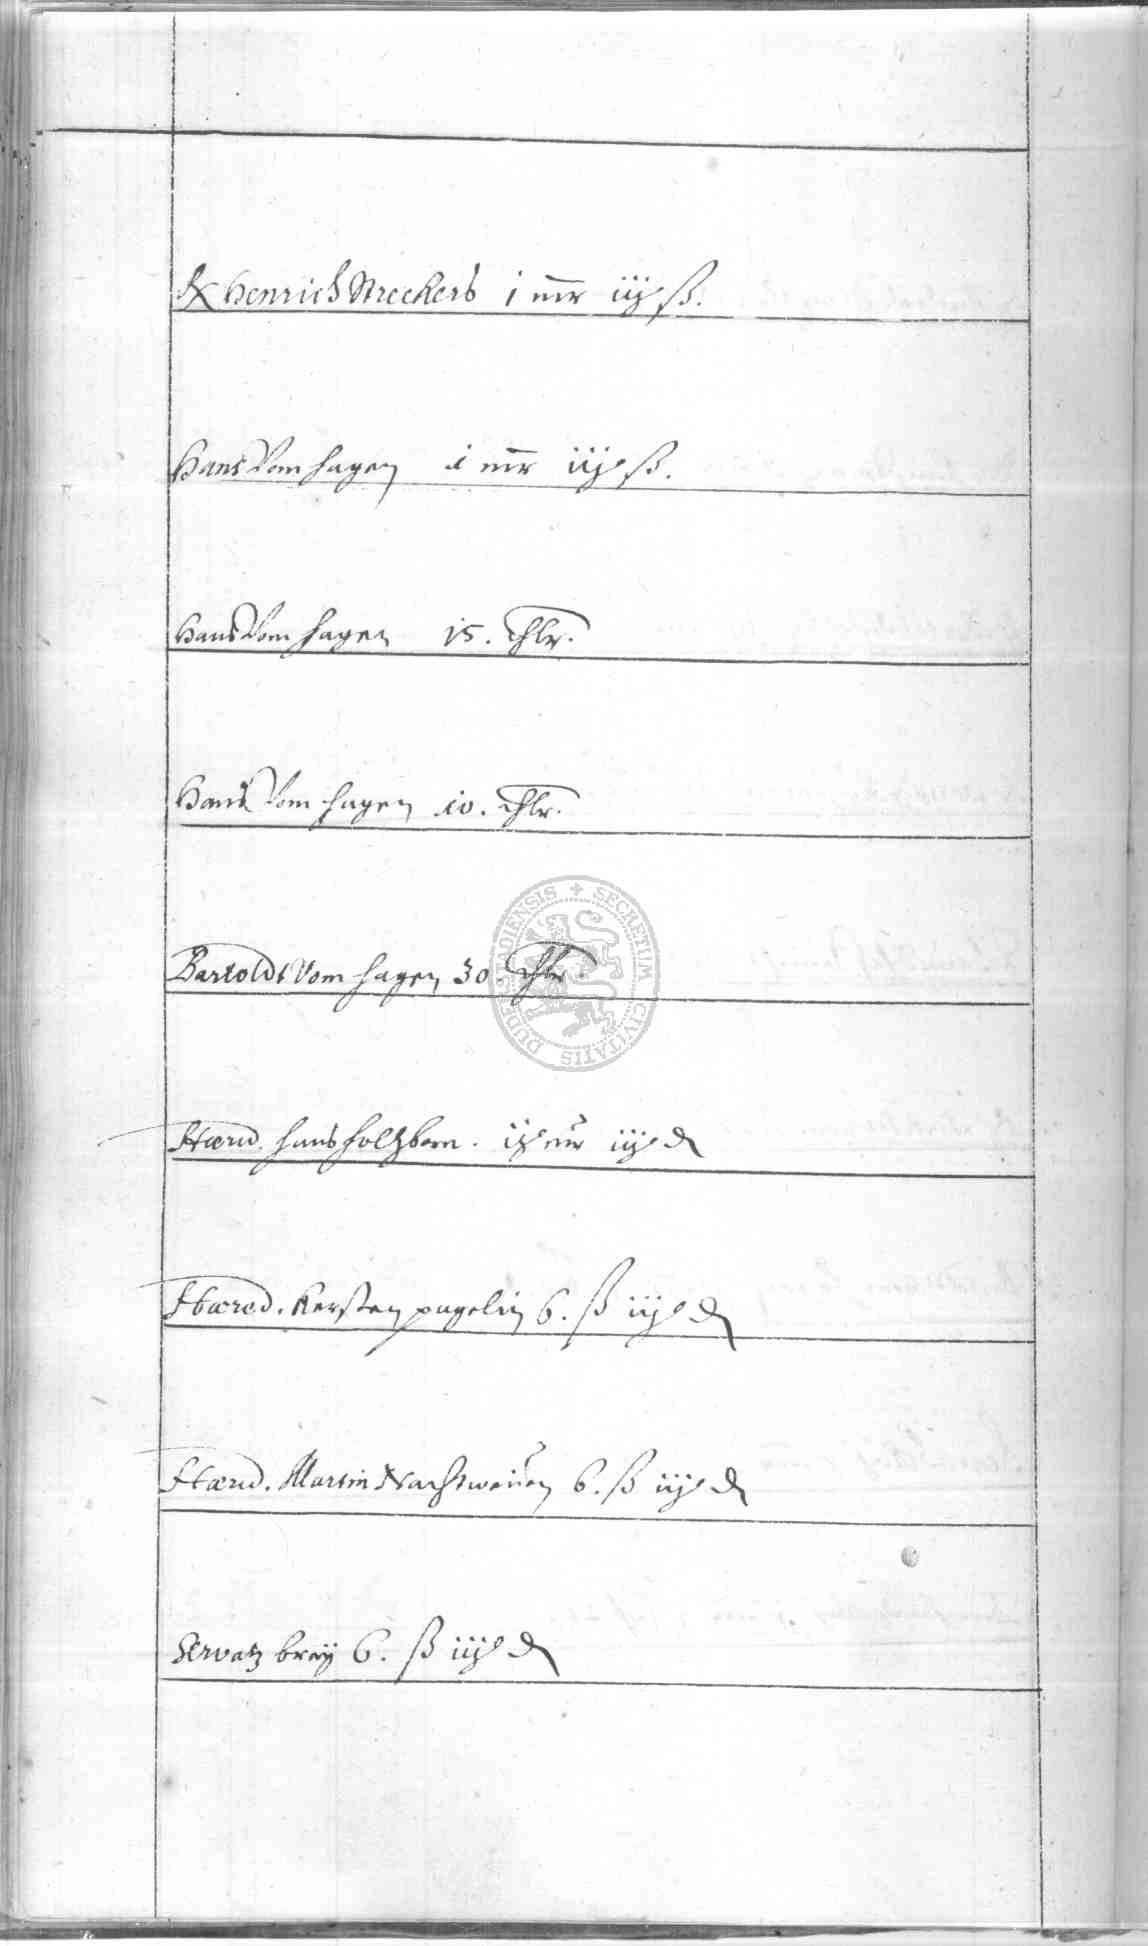 Henrich Streckers i mr iij ß.
Hans Vom hagen i mr iij ß.
Hans Vom hagen 15. thlr.
Hans Vom hagen 10. thlr.
Bartoldt Vom hagen 30 thlr.
Hæred. hans holtzborn. mr iij ₰
Hæred. Kersten pagelin 6. ß iij ₰
Hæred. Martin Nachtweiien 6. ß iij ₰
Servatz brey 6. ß iij ₰
SECRETUM CIVITATIS DUDERSTADIENSIS